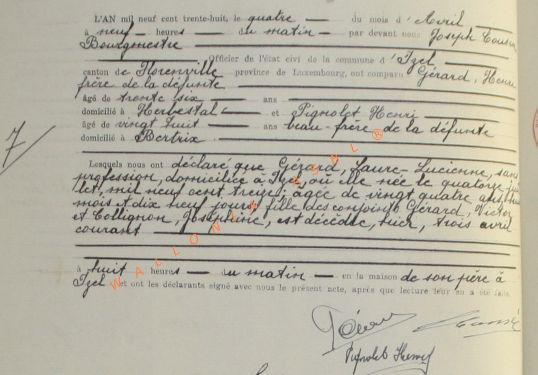 L'AN mil neuf cent trente-huit, le quatre — du mois d'Avril
à neuf — heures — du matin — par devant nous Joseph
Bourgmestre
Officier de l'état civil de la commune d'Izel
canton de Florenville province de Luxembourg, ont comparu Gérard, Henri
frère de la défunte
âgé de trente six — ans
domicilié à Herbestal — et Pignolet Henri
âgé de vingt huit — ans beau-frère de la défunte
domicilié à Bertrix
7
Lesquels nous ont déclaré que Gérard, Laure-Lucienne, sans
profession, domiciliée à Izel, où elle née le quatorze juil
let, mil neuf cent treize; âgée de vingt quatre ans, huit
mois et dix neuf jours, fille des conjoints Gérard, Victor
et Collignon, Joséphine, est décédée, hier, trois avril
courant
à huit heures — du matin — en la maison de son père à
Izel et ont les déclarants signé avec nous le présent acte, après que lecture leur en a été faite.
Pignolet Henri
WALLONIE